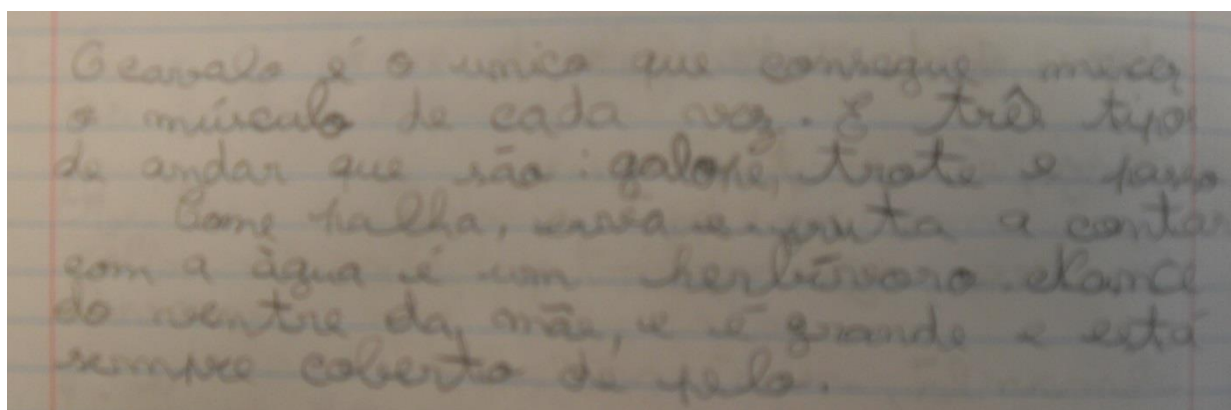 O cavalo é o unico que consegue mecer
o músculo de cada vez. E três tipos
de andar que são: galope, trote e passo
Come palha, erva e fruta a contar
com a àgua é um herbívoro. Nance
do ventre da mãe, e é grande e está
sempre coberto de pelo.